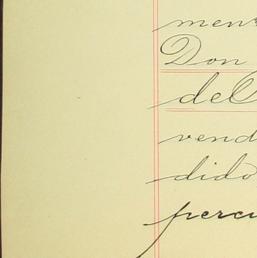 men
Don
del
vend
dido
percu